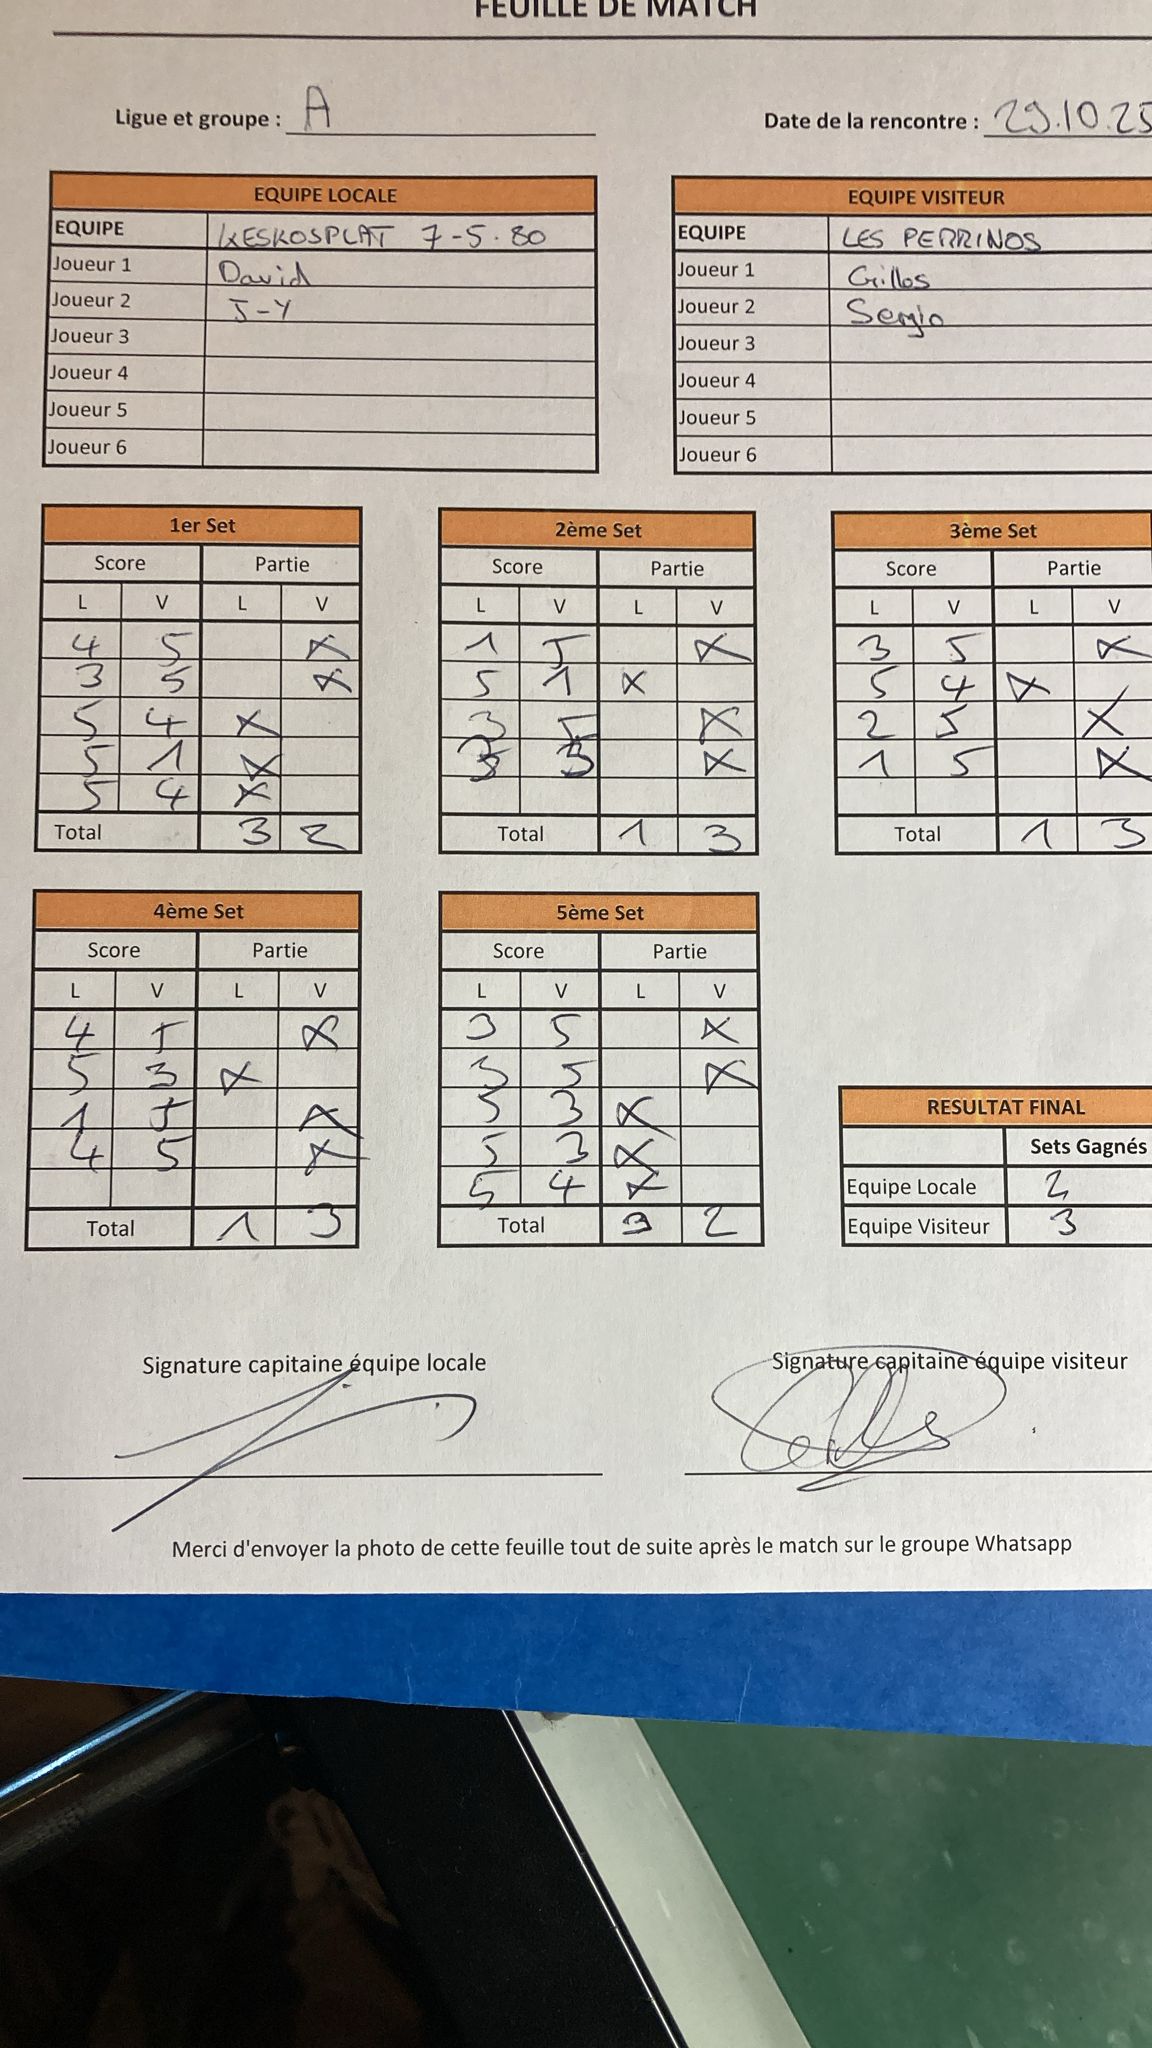 FEUILLE DE MATCH
Ligue et groupe : A
Date de la rencontre : 29.10.25
EQUIPE LOCALE
EQUIPE KESKOSPLAT 7-5.80
Joueur 1 David
Joueur 2 J-Y
Joueur 3
Joueur 4
Joueur 5
Joueur 6
EQUIPE VISITEUR
EQUIPE LES PERRINOS
Joueur 1 Gilles
Joueur 2 Sergio
Joueur 3
Joueur 4
Joueur 5
Joueur 6
1er Set
Score Partie
L V L V
4 5 X
3 5 X
5 4 X
5 1 X
5 4 X
Total 3 2
2ème Set
Score Partie
L V L V
1 5 X
5 1 X
3 5 X
3 5 X
Total 1 3
3ème Set
Score Partie
L V L V
3 5 X
5 4 X
2 5 X
1 5 X
Total 1 3
4ème Set
Score Partie
L V L V
4 5 X
5 3 X
1 5 X
4 5 X
Total 1 3
5ème Set
Score Partie
L V L V
3 5 X
3 5 X
5 3 X
5 3 X
5 4 X
Total 3 2
RESULTAT FINAL
Sets Gagnés
Equipe Locale 2
Equipe Visiteur 3
Signature capitaine équipe locale
Signature capitaine équipe visiteur
Merci d'envoyer la photo de cette feuille tout de suite après le match sur le groupe Whatsapp